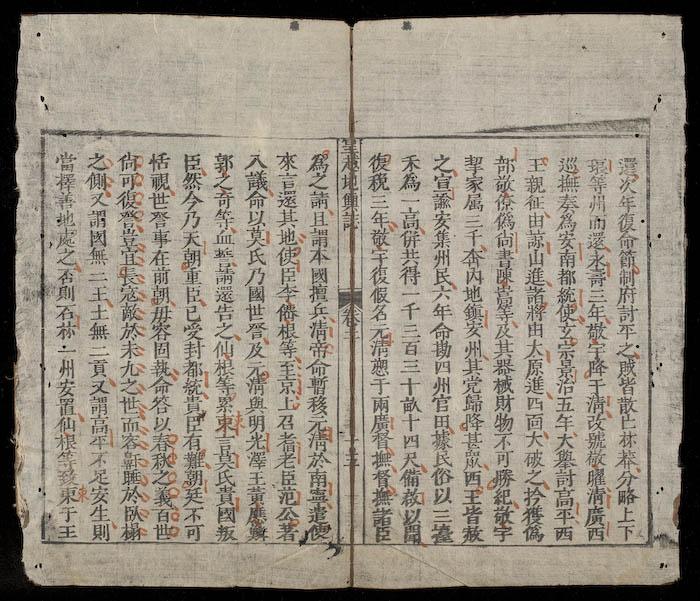 還次年復命節制府討平之賊皆散亡林莽分略上下
琅等州而還永壽三年敬宇降于清改號敬曜清廣西
巡撫奏為安南都統使玄宗景治五年大舉討高平西
王親征由諒山進諸將由太原進四面大破之擒獲偽
部敬僚偽尚書陳嵩等及其器械財物不可勝紀敬宇
挈家屬三千奔內地鎮安州其党歸降甚眾西王皆赦
之宣諭安集州民六年命勘四州官田據民俗以三擡
禾為一高併共得一千三百三十畝十四尺備啟以聞
復稅三年敬宇復假名元清愬于兩廣督撫督撫諸臣
皇越地輿誌 卷之二
為之請且謂本國擅兵清帝命暫移元清於南寧遣使
來言還其地使臣李僊根等至京上召耆老臣范公著
入議命以莫氏乃國世讐及元清與明光澤王黃應麟
郭之奇等血誓請還告之仙根等累柬言莫氏貴國叛
臣然今乃天朝重臣已受封都統貴臣有難朝廷不可
恬視世讐事在前朝毋容固執命答以春秋之義百世
尚可復讐豈宜長寇敵於未九之世而容鼾睡於臥榻
之側又謂國無二王土無二貢又謂高平不足安生則
當擇善地處之否則石林一州安置仙根等致柬于王